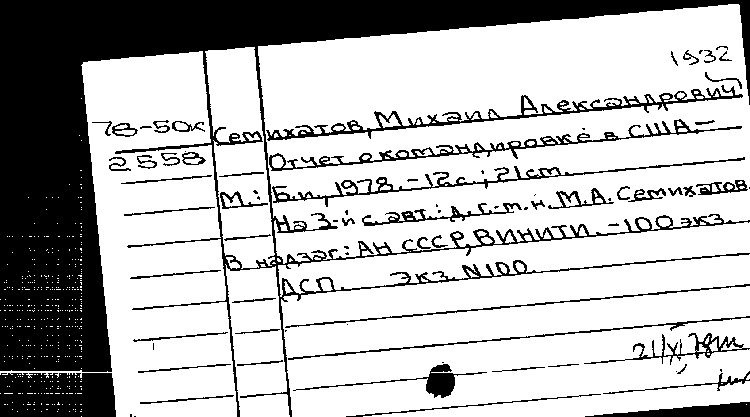 1932
78-50к Семихатов, Михаил Александрович
2558 Отчет о командировке в США.–
М.: Б.и., 1978.-12с.; 21см.
На 3-й с. авт.: д. г.-м. н. М.А. Семихатов
В надзаг.: АН СССР, ВИНИТИ. -100 экз.
ДСП. Экз. N100.
21/XI, 78